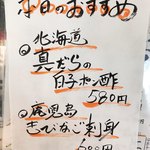 本日のおすすめ
北海道
真だらの
白子ポン酢
580円
鹿児島
きびなご刺身
580円